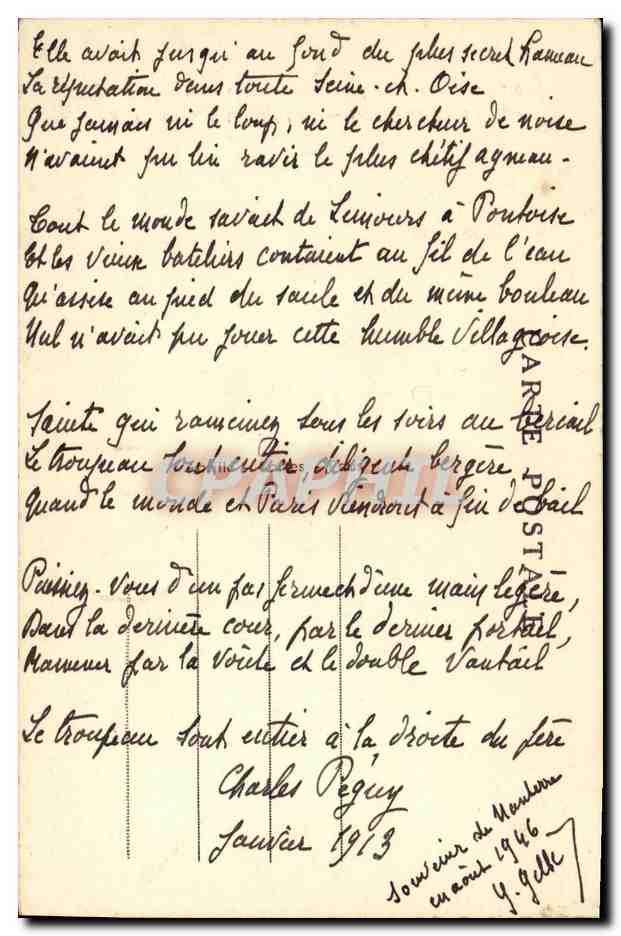 Elle avait jusqu'au fond du plus secret hameau
La réputation dans toute Seine-et-Oise
Que jamais ni le loup, ni le chercheur de noise
N'avaient pu lui ravir le plus chétif agneau.
Tout le monde savait de Limours à Pontoise
Et les vieux bateliers contaient au fil de l'eau
Qu'assise au pied du saule et du même bouleau
Nul n'avait pu jouer cette humble Villageoise.
Sainte qui rameniez tous les soirs au bercail
Le troupeau tout entier, diligente bergère
Quand le monde et Paris viendront à fin de bail
Puissiez-vous d'un pas ferme et d'une main légère,
Dans la dernière cour, par le dernier portail,
Ramener par la voûte et le double vantail
Le troupeau tout entier à la droite du père
Charles Péguy
Janvier 1913
Souvenir de Nanterre
en août 1946
CARTE POSTALE
CPAPHIL